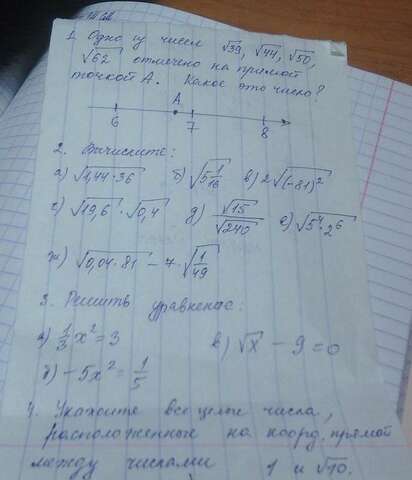 1. Одно из чисел √39, √44, √50,
√62 отмечено на прямой
точкой А. Какое это число?
А
6 7 8
2. Вычислите:
а) √1,44·36 б) √5 1/16 в) 2√(-81)²
г) √19,6 · √0,4 д) √15/√240 е) √5⁴·2⁶
ж) √0,04·81 - 7·√1/49
3. Решить уравнение:
а) 1/3 x² = 3 в) √x - 9 = 0
б) -5x² = 1/5
4. Укажите все целые числа,
расположенные на коорд. прямой
между числами 1 и √10.